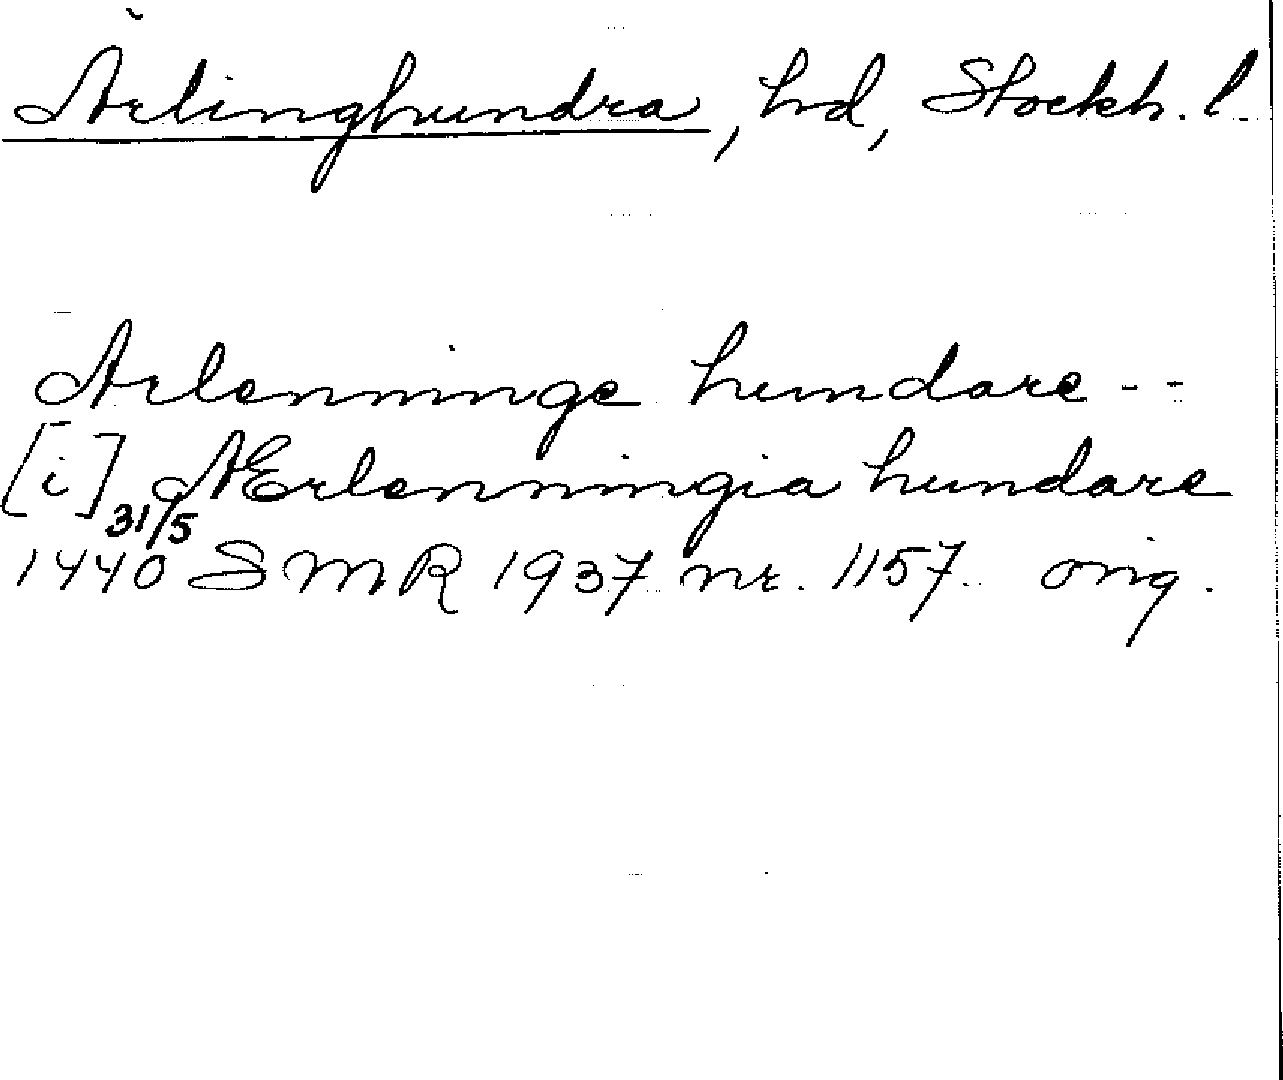 Ärlinghundra, hd, Stockh. l.
Arlenninge hundare --
[i] Ærlenningia hundare
31/5 1440 SMR 1937 nr. 1157 orig.